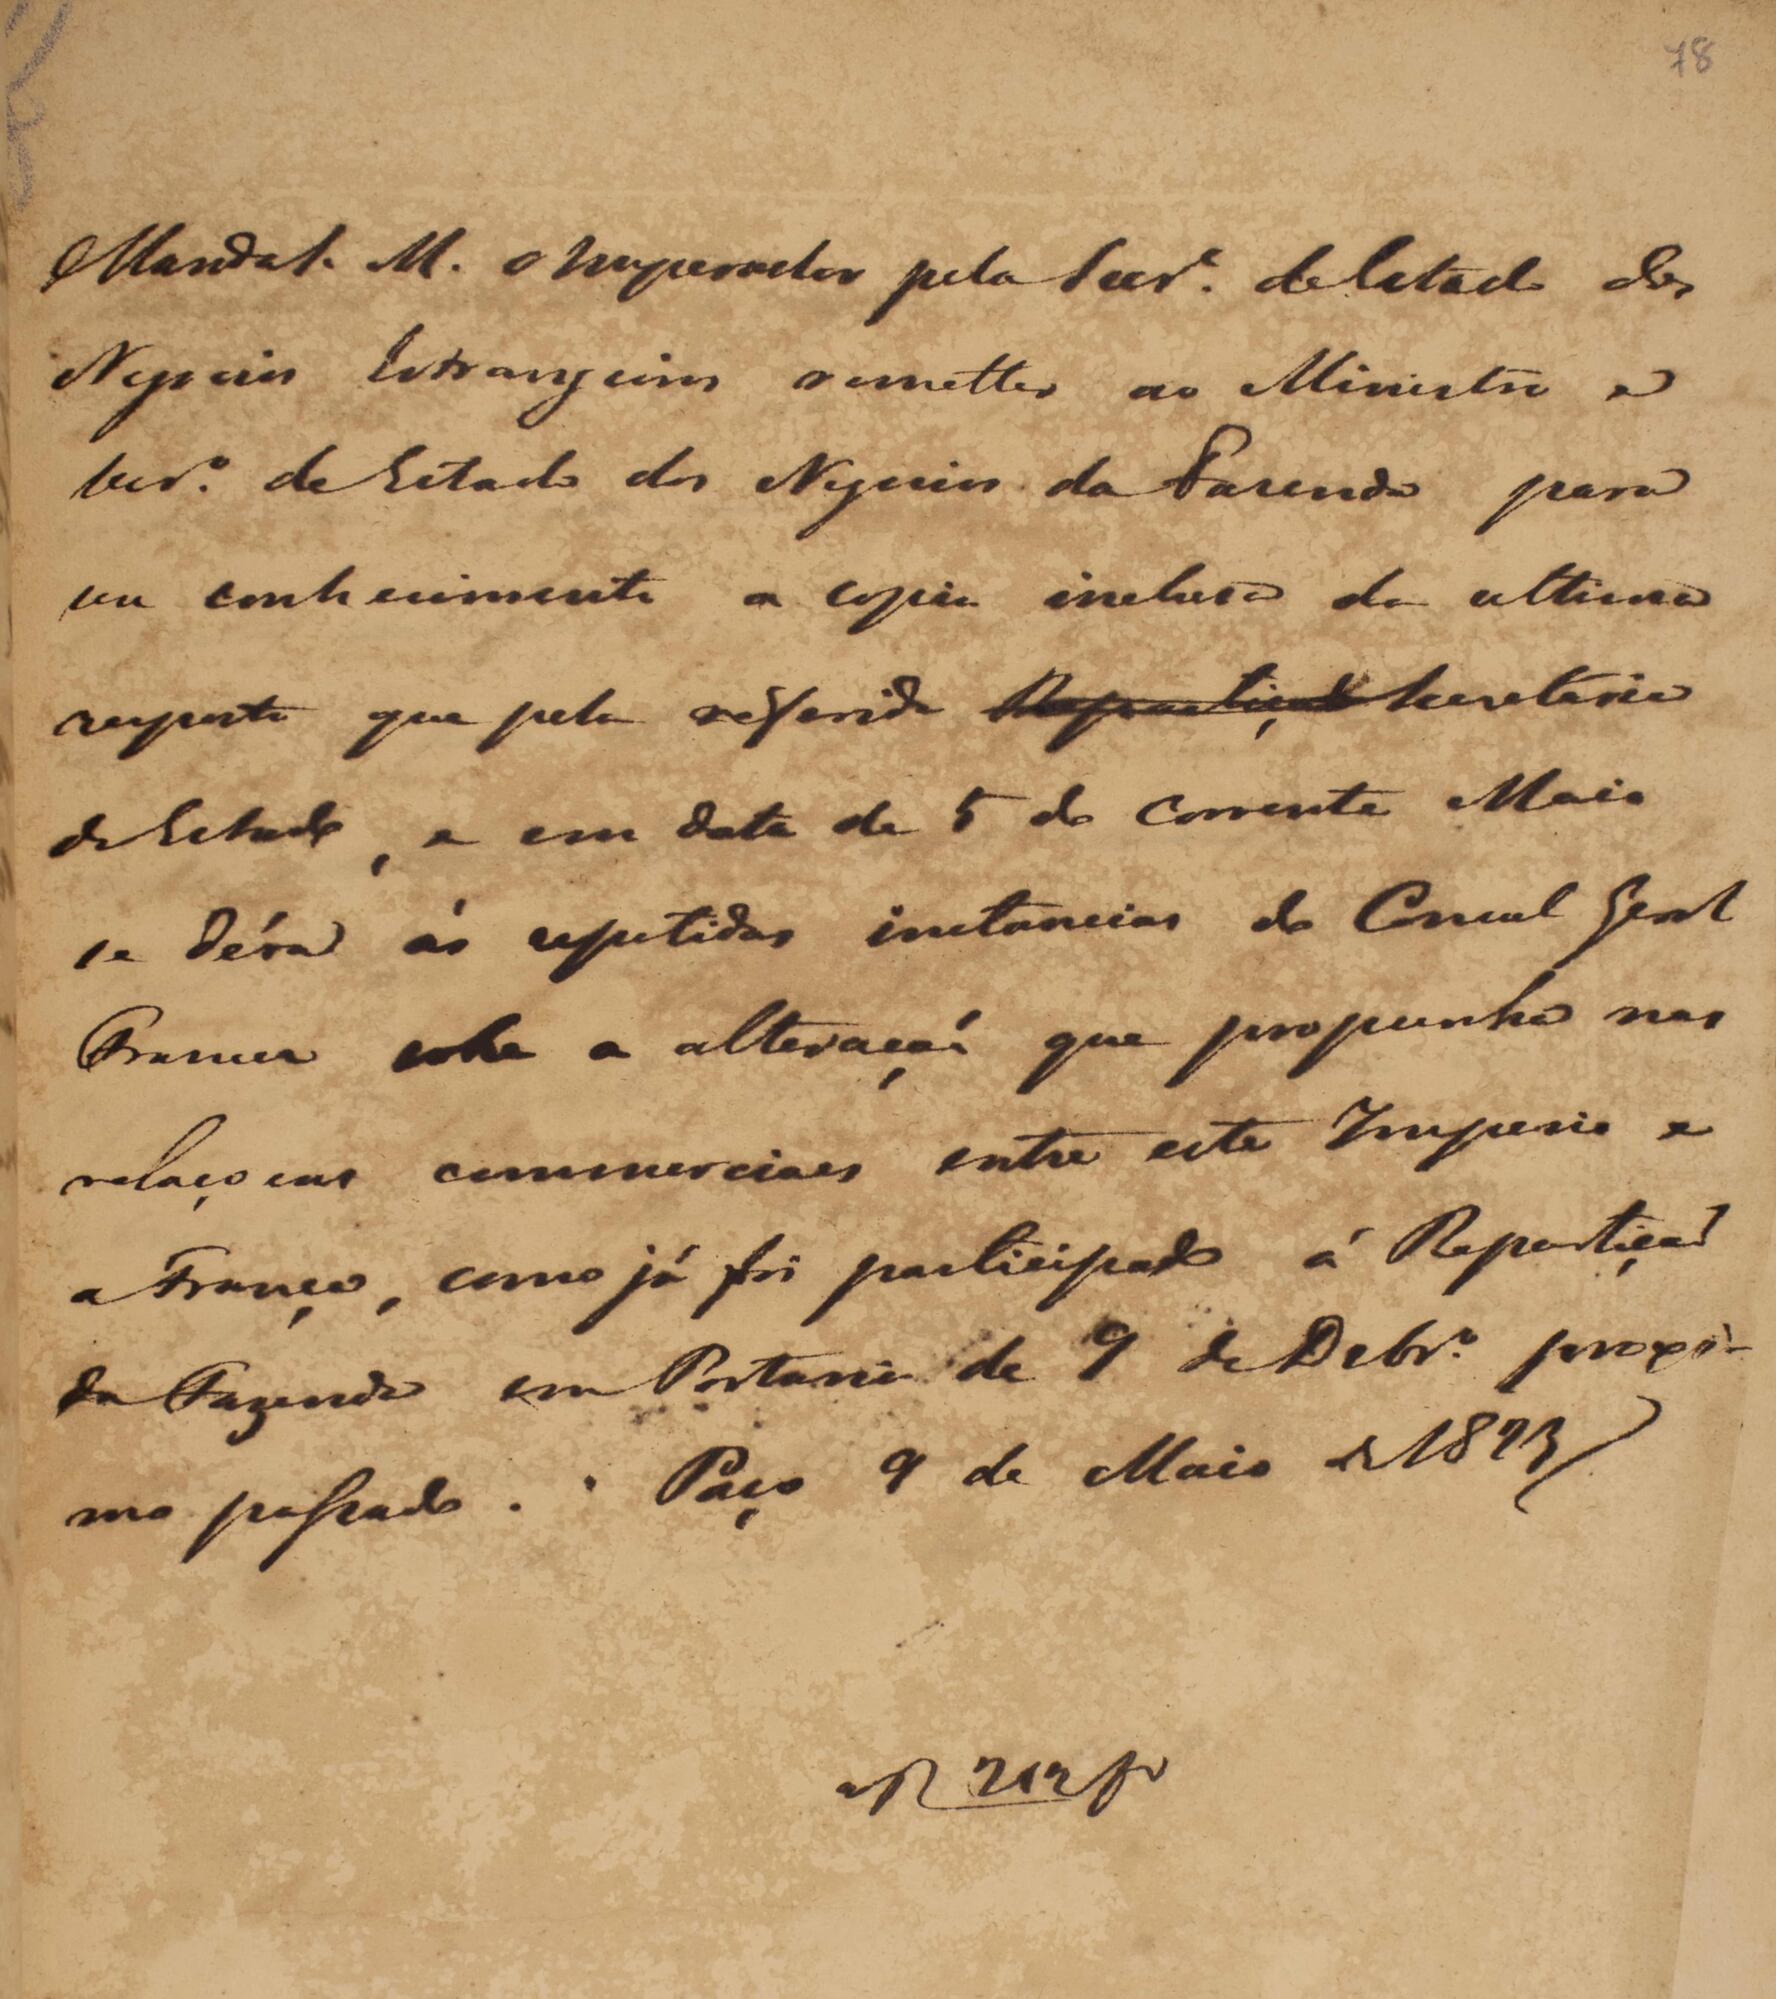 78
Manda S. M. o Imperador pela Secr.ª de Estado dos
Negocios Estrangeiros remetter ao Ministro e
Secr.º de Estado dos Negocios da Fazenda para
seu conhecimento a copia inclusa da ultima
resposta que pela referida Repartiçaõ Secretaria
de Estado, e em data de 5 do corrente Maio
se déra ás repetidas instancias do Consul Geral
Francez sobre a alteraçaõ que propunha nas
relaçoens commerciaes entre este Imperio e
a França, como já foi participado á Repartiçaõ
da Fazenda em Portaria de 9 de Debr.º proxi-
mo passado. Paço 9 de Maio de 1823